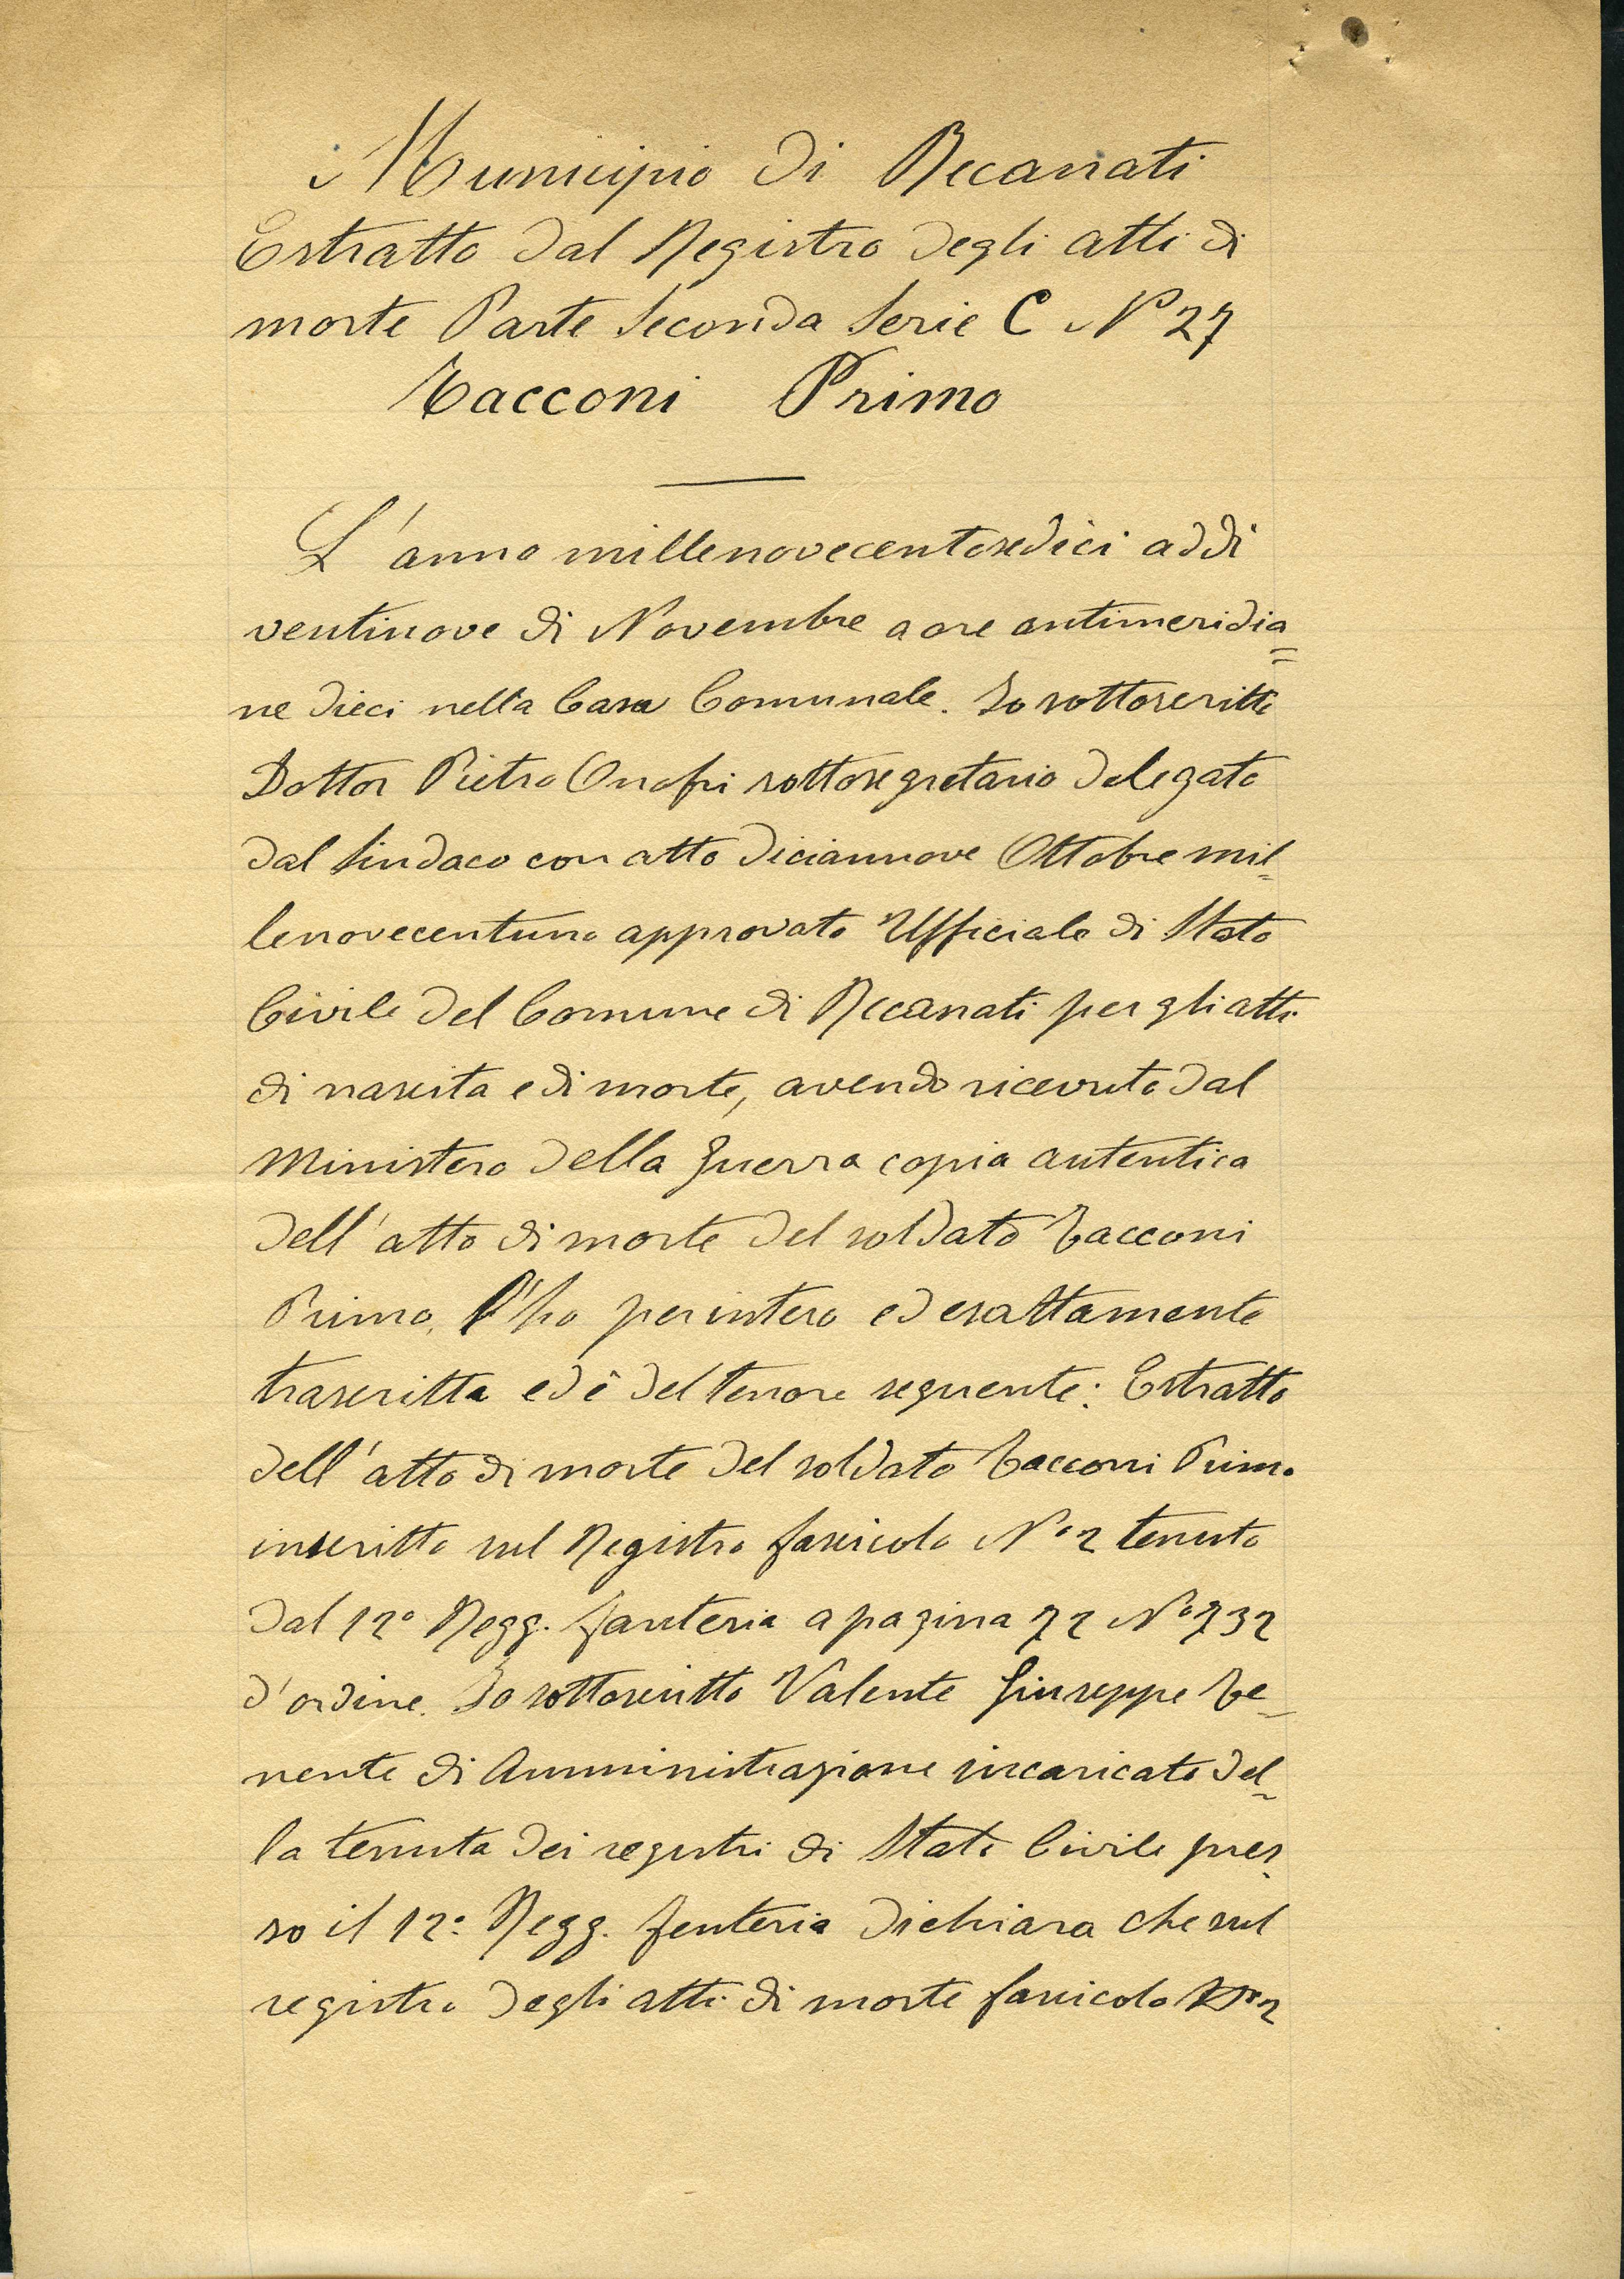 Municipio di Recanati
Estratto dal Registro degli atti di
morte Parte Seconda Serie C N° 27
Tacconi Primo
L'anno millenovecentosedici addi
ventinove di Novembre a ore antimeridia=
ne dieci nella Casa Comunale. Io sottoscritto
Dottor Pietro Onofri sottosegretario delegato
dal Sindaco con atto diciannove Ottobre mil=
lenovecentuno approvato Ufficiale di Stato
Civile del Comune di Recanati per gli atti
di nascita e di morte, avendo ricevuto dal
Ministero della Guerra copia autentica
dell'atto di morte del soldato Tacconi
Primo, l'ho per intero ed esattamente
trascritta ed è del tenore seguente: Estratto
dell'atto di morte del soldato Tacconi Primo
inscritto sul Registro fascicolo N° 2 tenuto
dal 12° Regg. fanteria a pagina 72 N° 732
d'ordine. Io sottoscritto Valente Giuseppe Te=
nente di Amministrazione incaricato del=
la tenuta dei registri di Stato Civile pres=
so il 12° Regg. fanteria dichiara che sul
registro degli atti di morte fascicolo N° 2